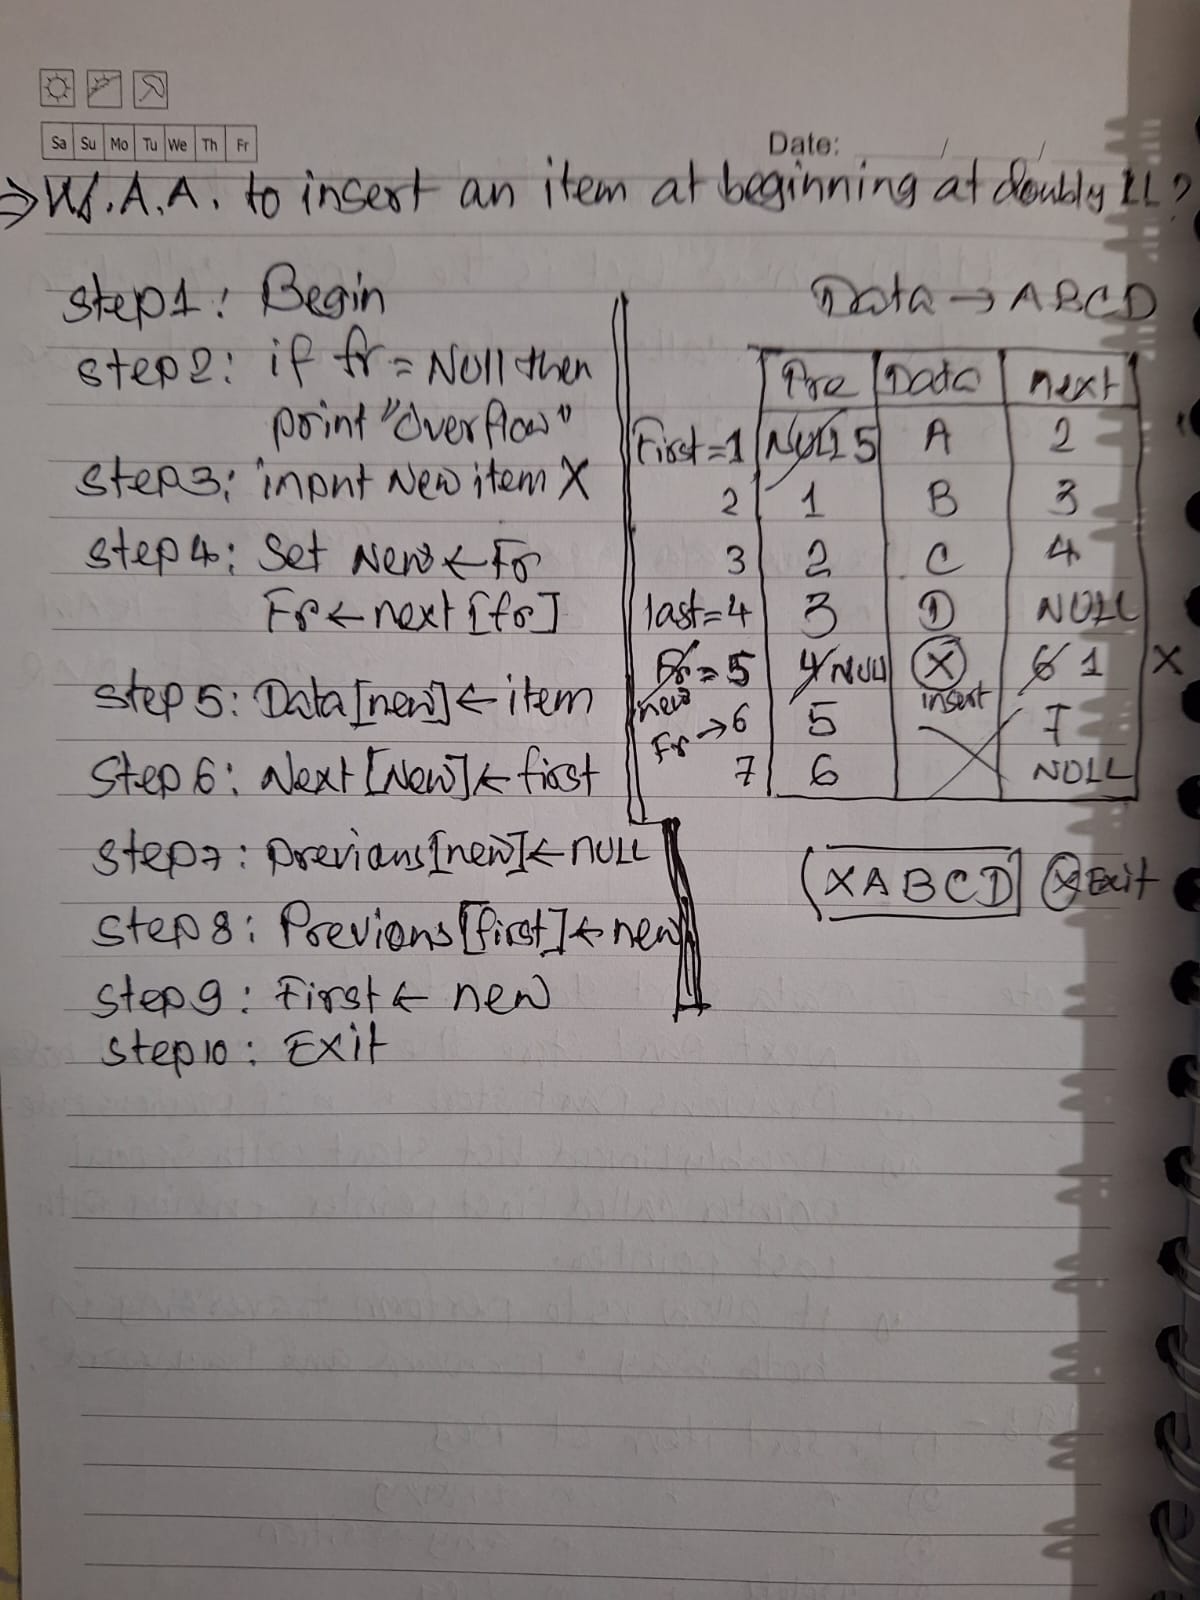 Sa Su Mo Tu We Th Fr
Date: / /
⇒ W.A.A. to insert an item at beginning at doubly LL?
Step1: Begin
Step2: if fr = NUll then
print "Overflow"
Step3: input New item X
Step4: Set New ← Fr
Fr ← next [fr]
Step5: Data[new] ← item
Step6: Next [New] ← first
Step7: previous[new] ← NULL
Step8: Previous [first] ← new
Step9: First ← new
Step10: Exit
Data → ABCD
Pre Data next
First=1 NULL 5 A 2
2 1 B 3
3 2 C 4
last=4 3 D NULL
Fr = 5 4 NUll X 6 1 X
new insert
Fr → 6 5 7
7 6 NULL
(XABCD) X Exit